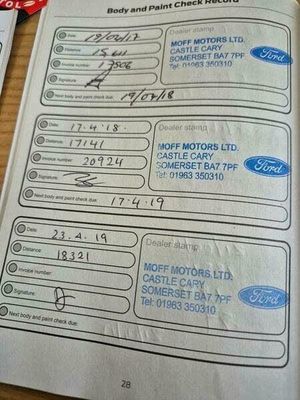 Body and Paint Check Record
Date: 19/04/17
Distance:
Invoice number:
Signature:
Next body and paint check due: 19/04/18
Dealer stamp
MOFF MOTORS LTD.
CASTLE CARY
SOMERSET BA7 7PF
Tel: 01963 350310
Ford
Date: 17.4.18.
Distance: 17141
Invoice number: 20924
Signature:
Next body and paint check due: 17.4.19
Dealer stamp
MOFF MOTORS LTD.
CASTLE CARY
SOMERSET BA7 7PF
Tel: 01963 350310
Ford
Date: 23.4.19
Distance: 18321
Invoice number:
Signature:
Next body and paint check due:
Dealer stamp
MOFF MOTORS LTD.
CASTLE CARY
SOMERSET BA7 7PF
Tel: 01963 350310
Ford
28